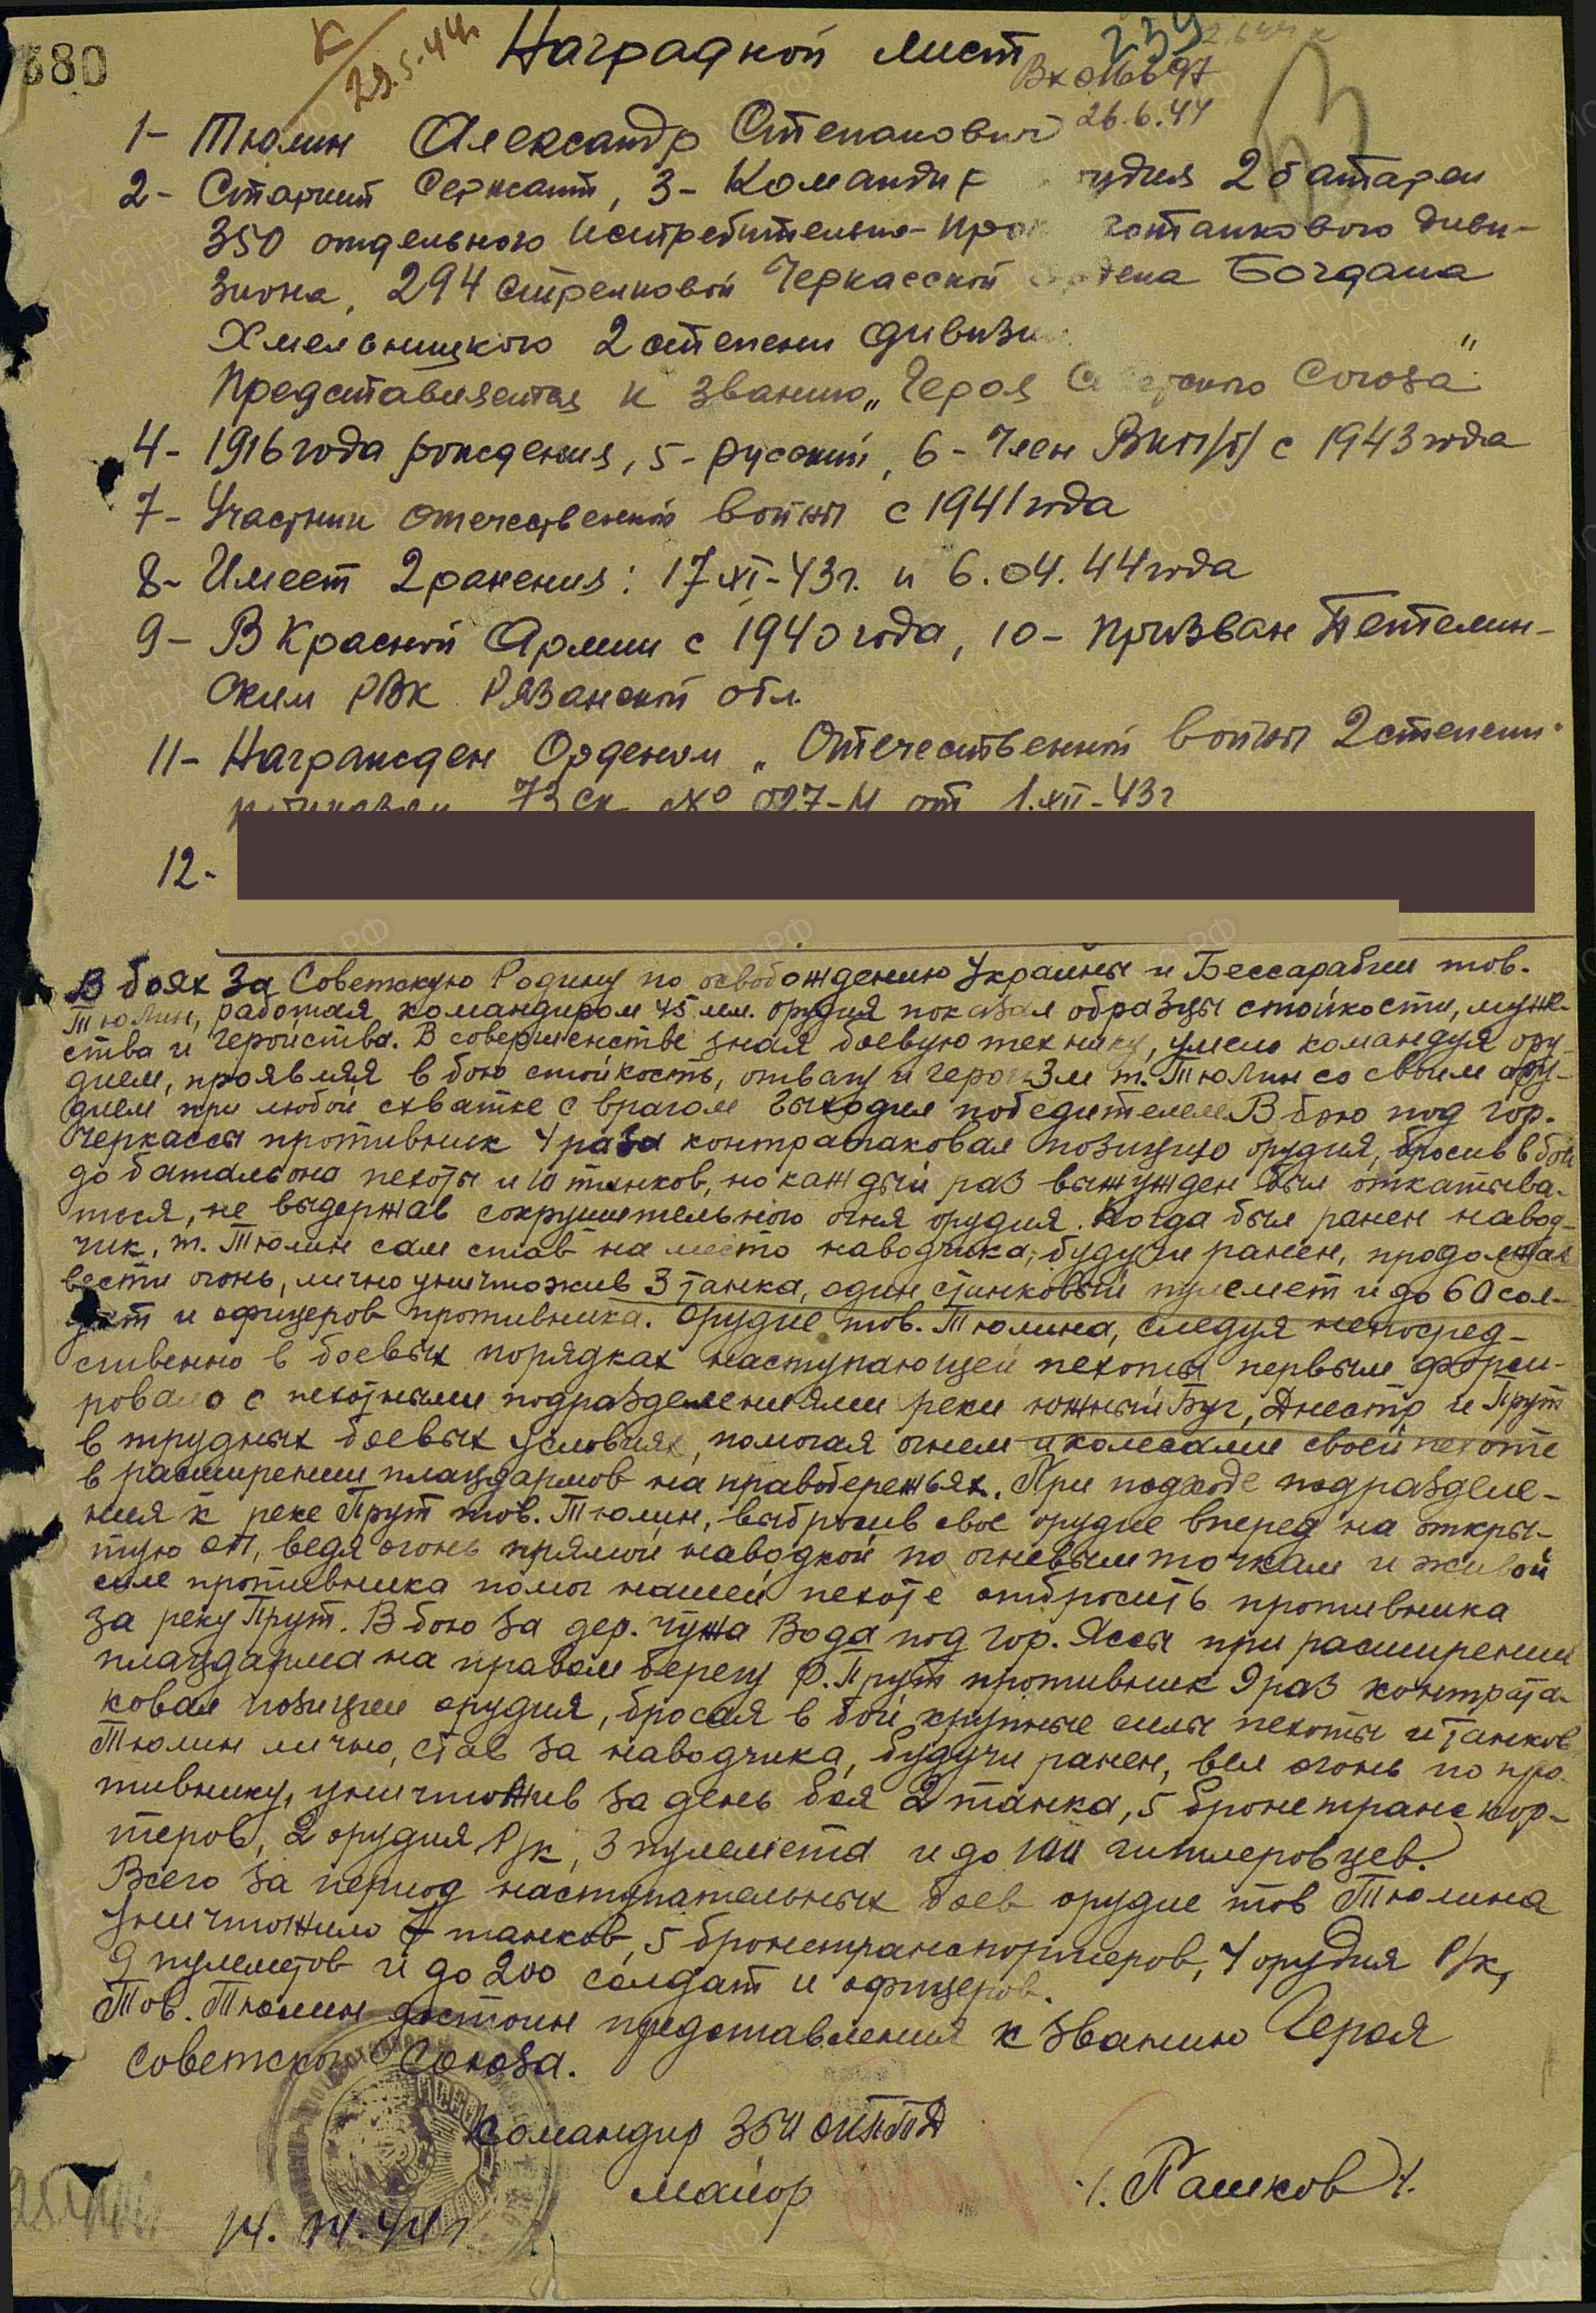 380
К
29.5.44г
Наградной лист
239
Вх 016697
26.6.44
1- Тюлин Александр Степанович
2- Старший Сержант, 3- Командир орудия 2 батареи
350 отдельного истребительно-противотанкового диви-
зиона, 294 стрелковой Черкасской ордена Богдана
Хмельницкого 2 степени дивизии
Представляется к званию „Героя Советского Союза"
4- 1916 года рождения, 5- русский, 6- Член ВКП/б/ с 1943 года
7- Участник отечественной войны с 1941 года
8- Имеет 2 ранения: 17.XI-43г. и 6.04.44 года
9- В Красной Армии с 1940 года, 10- призван Пителин-
ским РВК Рязанской обл.
11- Награжден Орденом „Отечественной войны 2 степени
приказом 73 СК № 027-Н от 1.XII-43г
12-
В боях за Советскую Родину по освобождению Украины и Бессарабии тов.
Тюлин, работая командиром 45 мм. орудия показал образцы стойкости, муже-
ства и геройства. В совершенстве зная боевую технику, умело командуя ору-
дием, проявляя в бою стойкость, отвагу и героизм т. Тюлин со своим ору-
дием при любой схватке с врагом выходил победителем. В бою под гор.
Черкассы противник 4 раза контратаковал позицию орудия, бросив в бой
до батальона пехоты и 10 танков, но каждый раз вынужден был откатыва-
ться, не выдержав сокрушительного огня орудия. Когда был ранен навод-
чик, т. Тюлин сам став на место наводчика, будучи ранен, продолжал
вести огонь, лично уничтожив 3 танка, один станковый пулемет и до 60 сол-
дат и офицеров противника. Орудие тов. Тюлина, следуя непосред-
ственно в боевых порядках наступающей пехоты первым форси-
ровало с пехотными подразделениями реки южный Буг, Днестр и Прут
в трудных боевых условиях, помогая огнем и колесами своей пехоте
в расширении плацдармов на правобережьях. При подходе подразделе-
ния к реке Прут тов. Тюлин, выбросив свое орудие вперед на откры-
тую ОП, ведя огонь прямой наводкой по огневым точкам и живой
силе противника помог нашей пехоте отбросить противника
за реку Прут. В бою за дер. Чужа Вода под гор. Яссы при расширении
плацдарма на правом берегу р. Прут противник 9 раз контрата-
ковал позиции орудия, бросая в бой крупные силы пехоты и танков
Тюлин лично, став за наводчика, будучи ранен, вел огонь по про-
тивнику, уничтожив за день боя 2 танка, 5 бронетранспор-
теров, 2 орудия Р/к, 3 пулемета и до 100 гитлеровцев.
Всего за период наступательных боев орудие тов Тюлина
уничтожило 7 танков, 5 бронетранспортеров, 4 орудия Р/к,
9 пулеметов и до 200 солдат и офицеров.
Тов. Тюлин достоин представления к званию Героя
Советского Союза.
Командир 350 ОИПТД
майор /. Пашков /.
14. IV. 44г